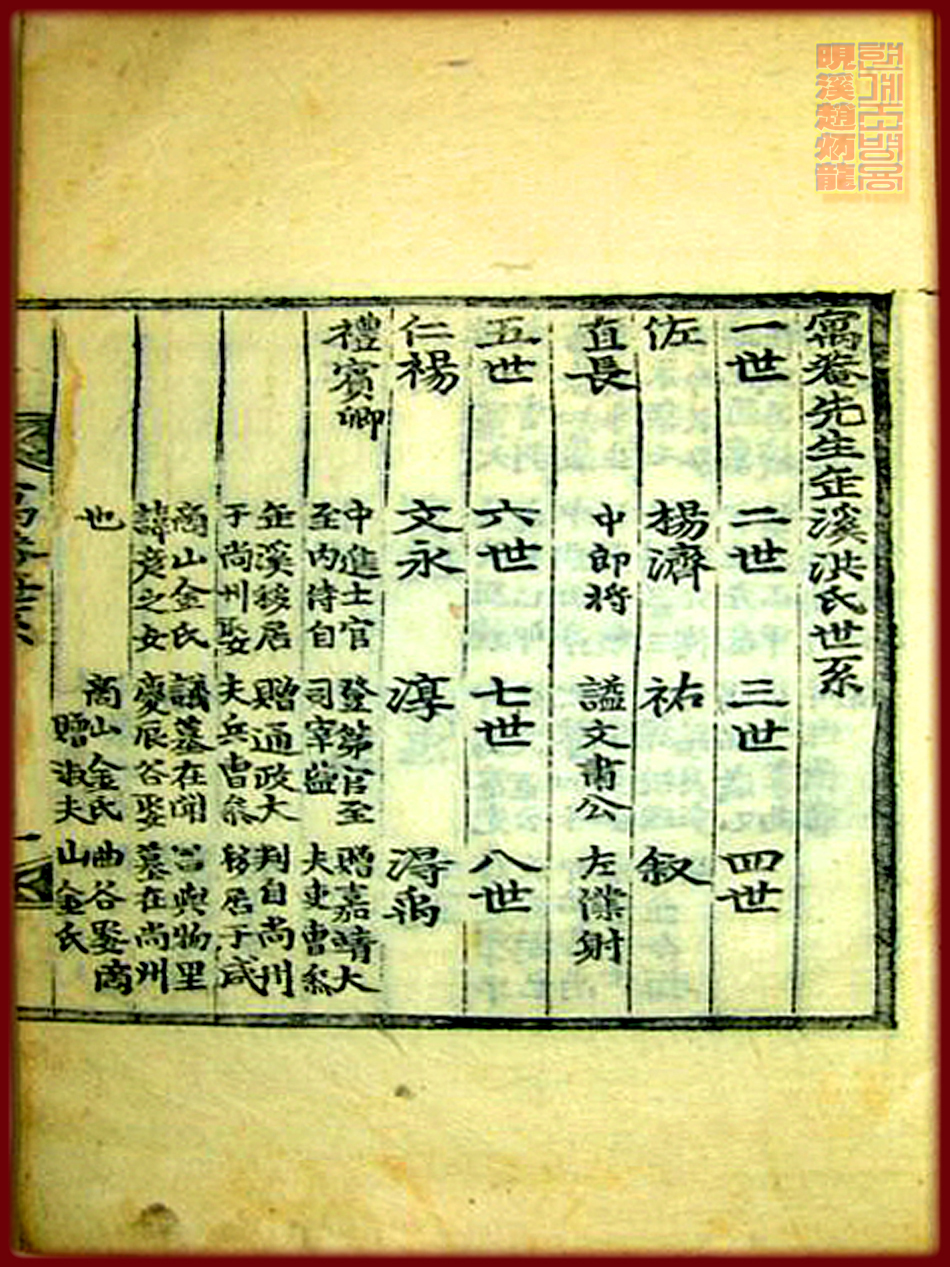 晛溪趙炳龍
寓菴先生缶溪洪氏世系
一世 二世 三世 四世
佐 楊濟 祐 叙
直長 中郎将 諡文肅公 左僕射
五世 六世 七世 八世
仁楊 文永 淳 淂禹
禮賓卿
中進士官
至內侍自
缶溪移居
于尚州娶
商山金氏
諱彦之女
也
登第官至
司宰監
贈通政大
夫兵曺叅
議墓在聞
慶辰谷娶
商山金氏
贈淑夫
贈嘉靖大
夫吏曺叅
判自尚州
移居于咸
昌興物里
墓在尚州
曲谷娶商
山金氏